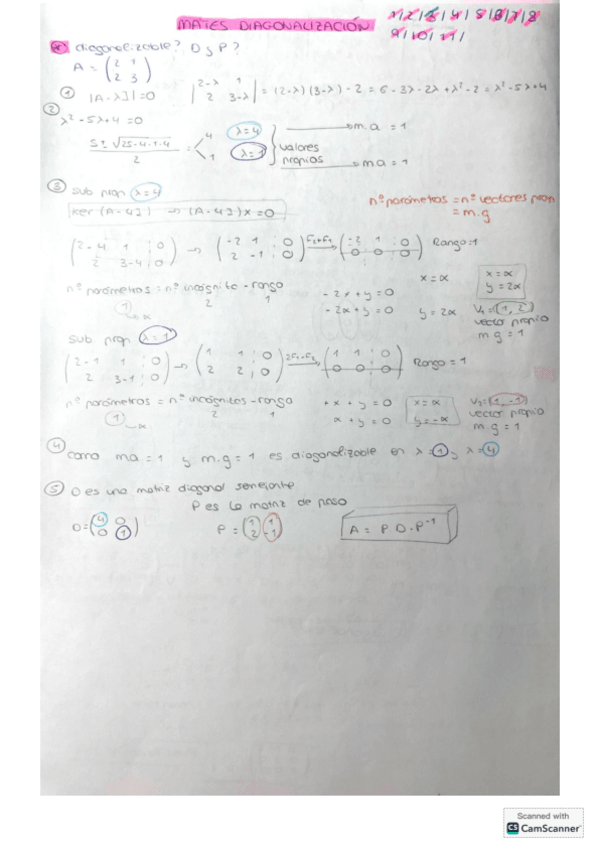 MATES DIAGONALIZACIÓN
1/2/3/4/5/6/7/8
9/10/11/
diagonalizable? D y P?
A = (2 1
2 3)
① |A - λI| = 0
|2-λ 1
2 3-λ| = (2-λ)(3-λ) - 2 = 6 - 3λ - 2λ + λ² - 2 = λ² - 5λ + 4
② λ² - 5λ + 4 = 0
5 ± √25 - 4 · 1 · 4 / 2 = 4 λ=4 → m.a = 1
1 λ=1 → m a = 1
valores propios
③ sub prop λ=4
ker (A - 4I) → (A - 4I) x = 0
nº parámetros = nº vectores prop
= m.g
(2-4 1 : 0
2 3-4 : 0) → (-2 1 : 0
2 -1 : 0) F1+F2 → (-2 1 : 0
0 0 : 0) Rango = 1
nº parámetros = nº incógnita - rango
① 2 1
α
-2x + y = 0
-2x + y = 0
x = α
y = 2α
x = α
y = 2α
V1 = (1, 2)
vector propio
m g = 1
sub prop λ=1
(2-1 1 : 0
2 3-1 : 0) → (1 1 : 0
2 2 : 0) 2F1-F2 → (1 1 : 0
0 0 : 0) Rango = 1
nº parámetros = nº incógnitas - rango
① 2 1
α
+x + y = 0
x + y = 0
x = α
y = -α
V2 = (1, -1)
vector propio
m. g = 1
④ como ma = 1 y m.g = 1 es diagonalizable en λ = 1 y λ = 4
⑤ D es una matriz diagonal semejante
P es la matriz de paso
D = (4 0
0 1)
P = (1 1
2 -1)
A = P D · P⁻¹
Scanned with
CS CamScanner